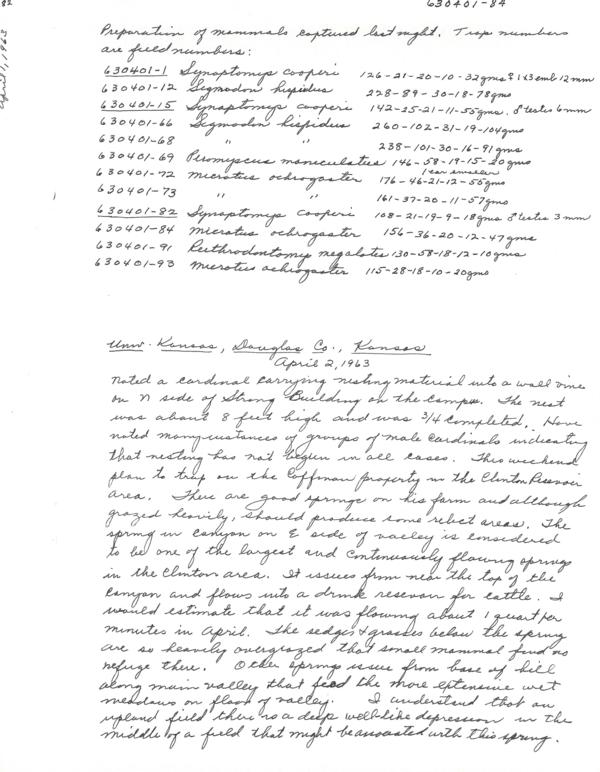 82
630401-84
April 1, 1963
Preparation of mammals captured last night. Trap numbers
are field numbers:
630401-1 Synaptomys cooperi 126-21-20-10-32gms ♀ 1x3 emb 12mm
630401-12 Sigmodon hispidus 228-89-30-18-78gms
630401-15 Synaptomys cooperi 142-25-21-11-55gms. ♂ testis 6mm
630401-66 Sigmodon hispidus 260-102-31-19-104gms
630401-68 " " 238-101-30-16-91gms
630401-69 Peromyscus maniculatus 146-58-19-15-20gms
1 ear smaller
630401-72 Microtus ochrogaster 176-46-21-12-55gms
630401-73 " " 161-37-20-11-57gms
630401-82 Synaptomys cooperi 108-21-19-9-18gms ♂ testis 3mm
630401-84 Microtus ochrogaster 156-36-20-12-47gms
630401-91 Reithrodontomys megalotis 130-58-18-12-10gms
630401-93 Microtus ochrogaster 115-28-18-10-20gms
Univ. Kansas, Douglas Co., Kansas
April 2, 1963
Noted a cardinal carrying nesting material into a wall vine
on N side of Strong Building on the campus. The nest
was about 8 feet high and was 3/4 completed. Have
noted many instances of groups of male cardinals indicating
that nesting has not begun in all cases. This weekend
plan to trap on the Coffman property in the Clinton Reservoir
area. There are good springs on his farm and although
grazed heavily, should produce some relict areas. The
spring in canyon on E side of valley is considered
to be one of the largest and continuously flowing springs
in the Clinton area. It issues from near the top of the
canyon and flows into a drink resevoir for cattle. I
would estimate that it was flowing about 1 quart per
minutes in April. The sedges & grasses below the spring
are so heavily overgrazed that small mammals find no
refuge there. Other springs issue from base of hill
along main valley that feed the more extensive wet
meadows on floor of valley. I understand that an
upland field there is a deep well-like depression in the
middle of a field that might be associated with this spring.